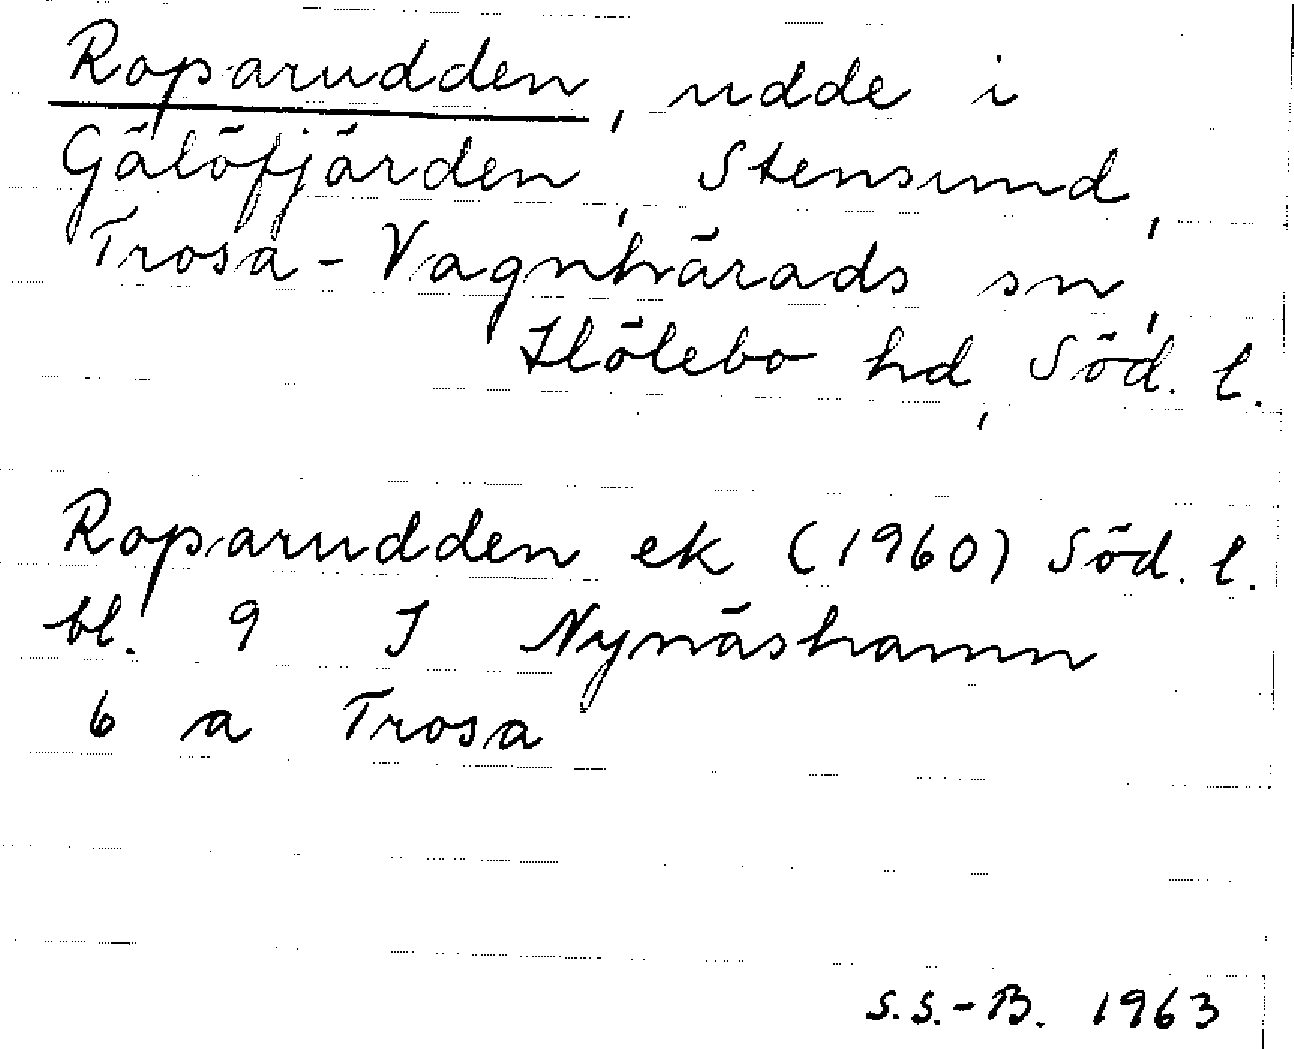 Roparudden, udde i
Gälöfjärden, Stensund,
Trosa-Vagnhärads sn,
Hölebo hd, Söd. l.
Roparudden ek (1960) Söd. l.
bl. 9 I Nynäshamn
6 a Trosa
S.S.-B. 1963